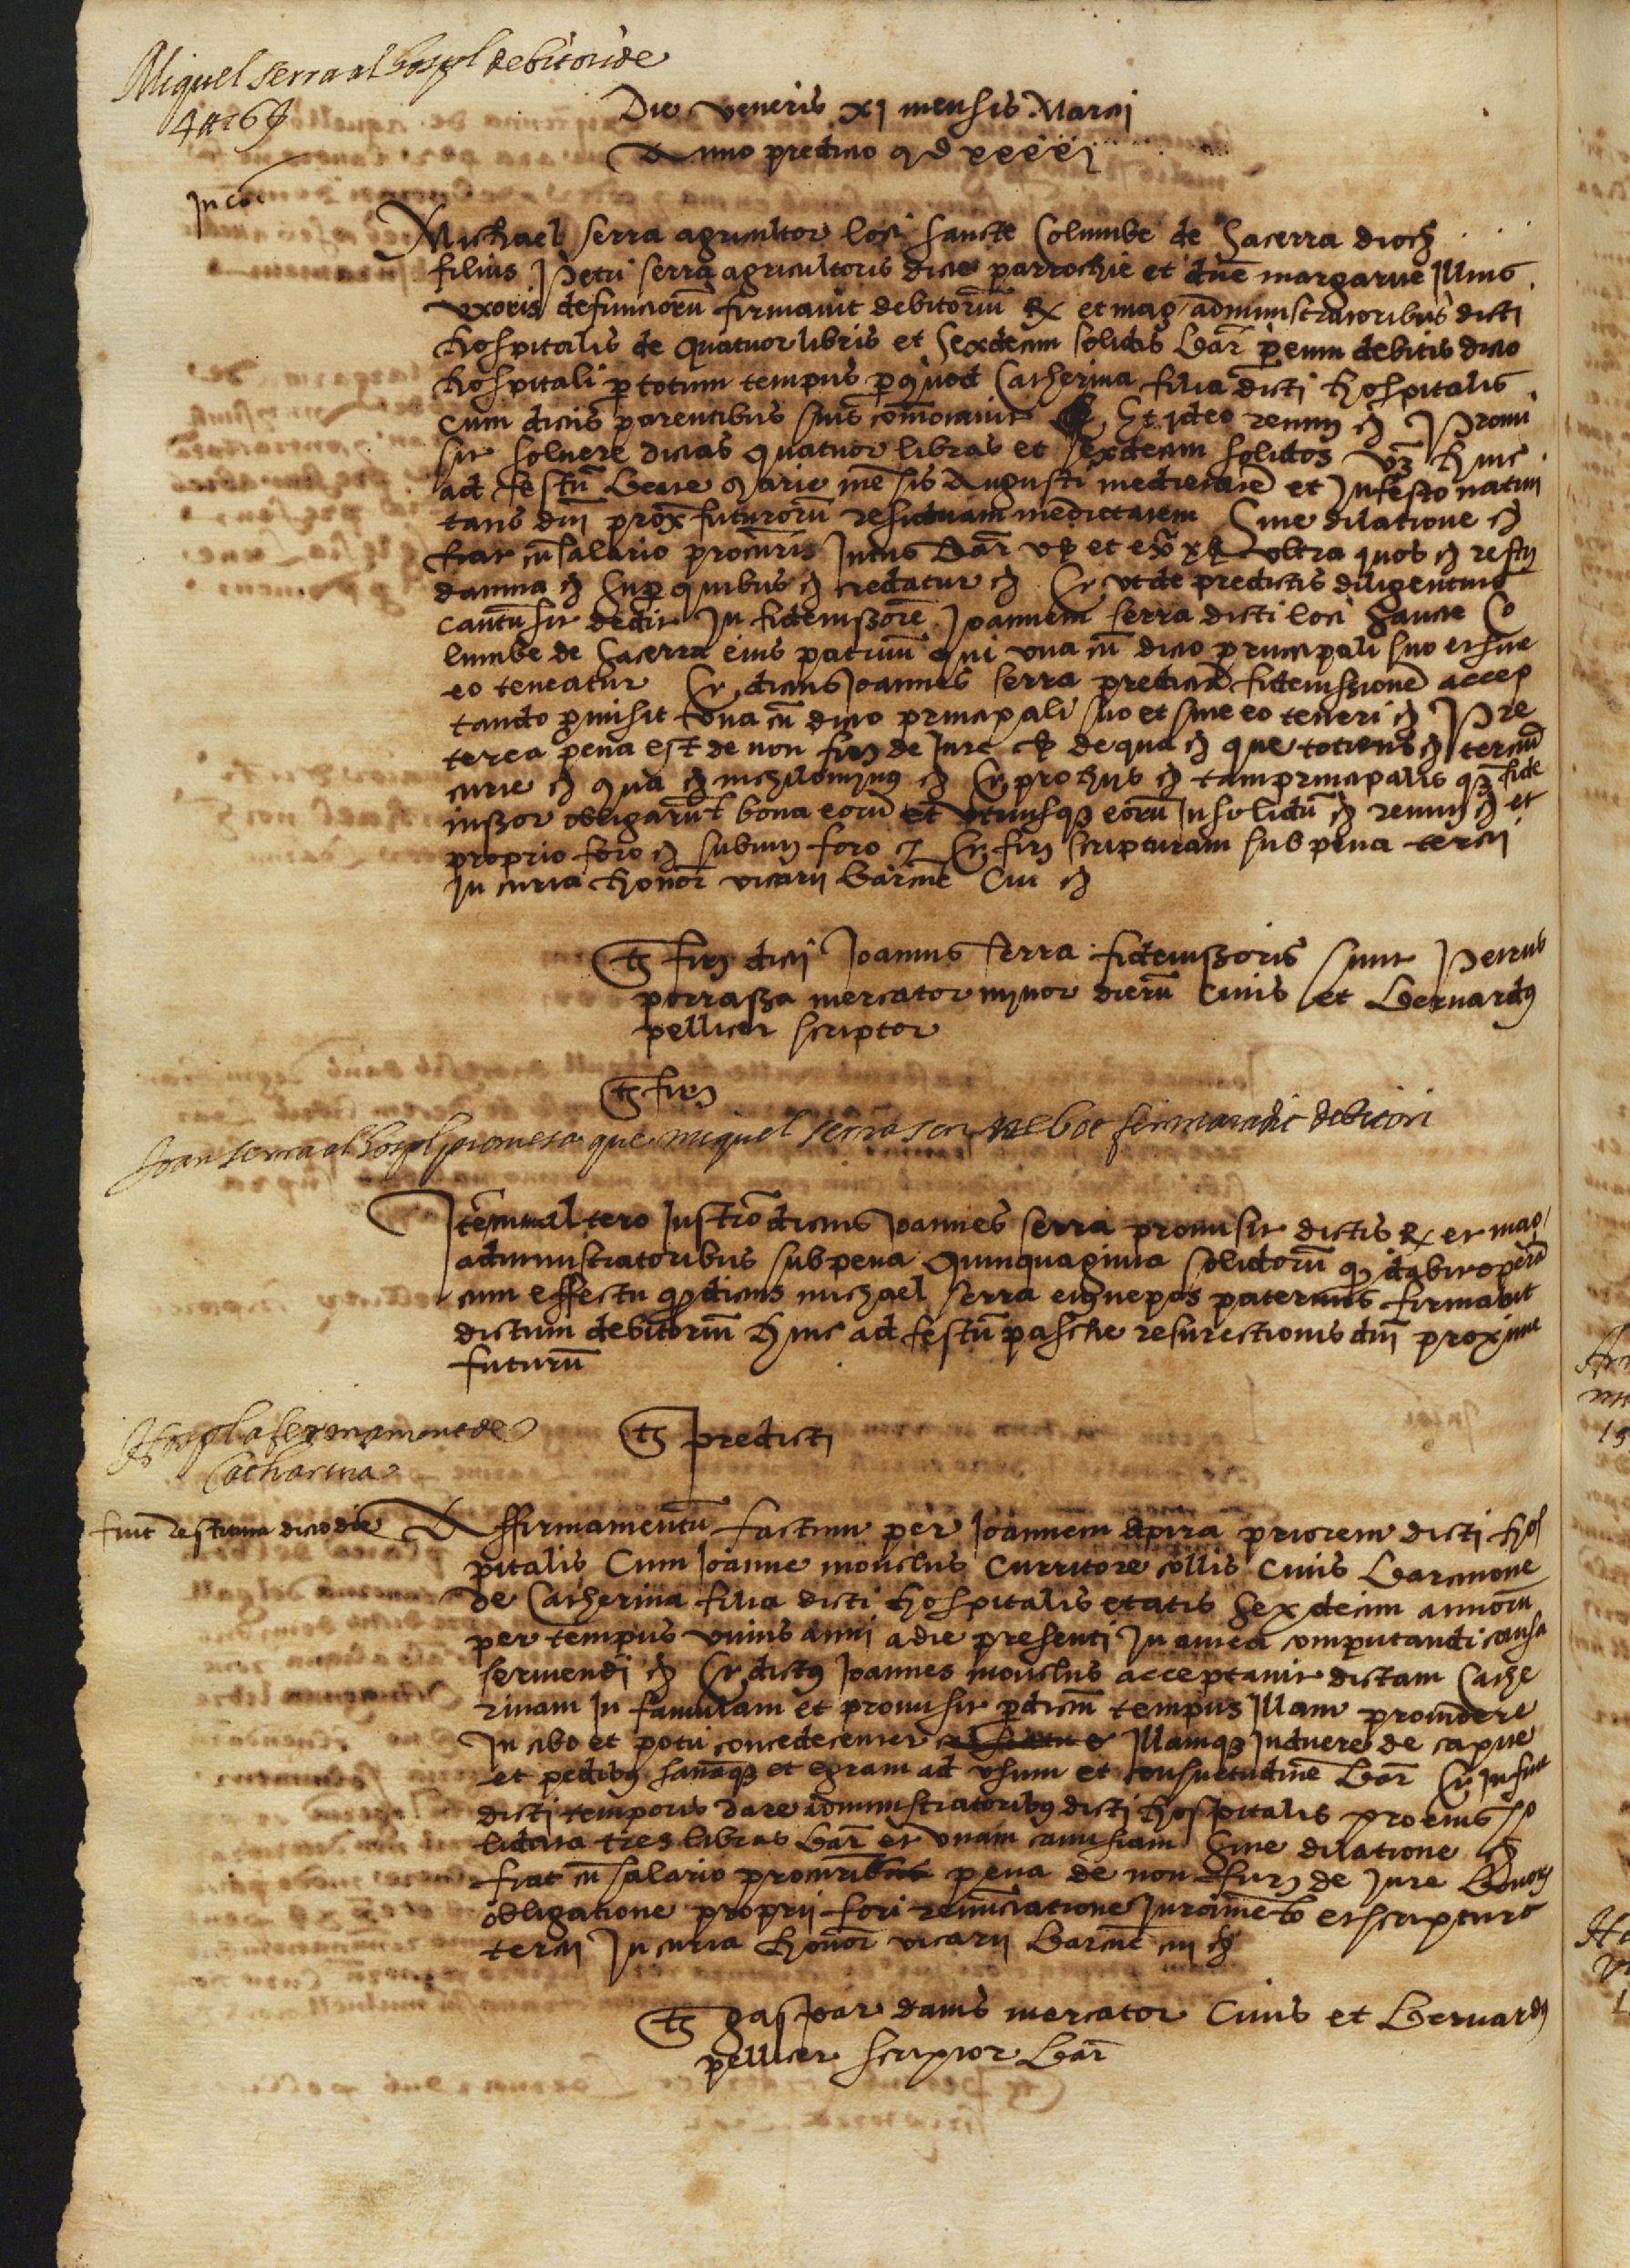 Miquel serra al hospl debitori de
4 ₶ 16 ß
Die veneris xj mensis Marcij
Anno predicto
In co
Michael serra agricultor loci sancte Columbe de Sacerra dioc
filius Petri serra agricultoris dicte parrochie et dne margarite illius
uxoris defunctorũ firmavit debitoriũ Rx et mag administratoribus dicti
hospitalis de quatuor libris et sexdecim solidis bar per eum debitis dicto
hospitali p totum tempus p quod Catherina filia dicti hospitalis
cum dictis parentibus suis comoravit Et ideo renun Promi
sit solvere dictas quatuor libras et sexdecim solidos hinc
ad festũ beate Marie mensis Augusti medietatẽ et In festo nativi
tatis dni prox futurorũ residuam medietatem Sine dilatione
fiat cũ salario procuris Intus bar v ß et ex x ß ultra quos restt
damna sup quibus credatur Et ut de predictis diligentius
cautũ sit dedit In fideiussorẽ Joannem serra dicti loci Sancte Co
lumbe de Sacerra eius patruũ qui una cũ dicto principali suo et sine
eo teneatur Et dictus Joannes serra predictã fideiussionẽ accep
tando pmisit una cũ dicto principali suo et sine eo teneri Pre
terea pena est de non firm de Jure de qua que totiens terciũ
curie qua nichilominus Et pro hijs tam principalis q fide
iussor obligarũt bona eorũ et utriusq eorũ Insolidũ renun et
proprio foro submm foro Et firm scripturam sub pena tercij
In curia honor vicarij barcne Cui
Ts firm dicti Joannis serra fideiussoris sunt Petrus
porrassa mercator minor dierũ civis et bernardus
pellicer scriptor
Ts firm
Joan serra al hospl promesa que miquel serra son nebot fermara dit debitori
Item in altero Instro dictus Joannes serra promisit dictis Rx et mag
administratoribus sub pena quinquaginta solidorũ q dabit operã
cum effectu q dictus michael serra eius nepos paternus firmabit
dictum debitoriũ hinc ad festũ pasche resurectionis dni proxime
futurũ
Hospl afermament de
Catharina
Ts predicti
fuit restituta dicto die
Affirmamentũ factum per Joannem Apira priorem dicti hos
pitalis Cum Joanne monclus Curritore collis Civis barcinone
de Catherina filia dicti hospitalis etatis sexdecim annorũ
per tempus unius anni a die presenti In antea computandi causa
serviendi Et dictus Joannes monclus acceptavit dictam Cathe
rinam In famulam et promisit p dictũ tempus Illam providere
In cibo et potu concedecenter Illamq Induere de capite
et pedibus sanamq et egram ad usum et consuetudinẽ bar Et In fine
dicti temporis dare administratoribus dicti hospitalis pro eius so
lidata tres libras bar et unam camisiam Sine dilatione
fiat cũ salario procuribus pena de non firm de Jure bonor
obligatione proprij fori renũciatione Juramento et scriptura
tercij In curia honor vicarij barcne cui
Ts gaspar danis mercator Civis et bernardus
pellicer scriptor bar